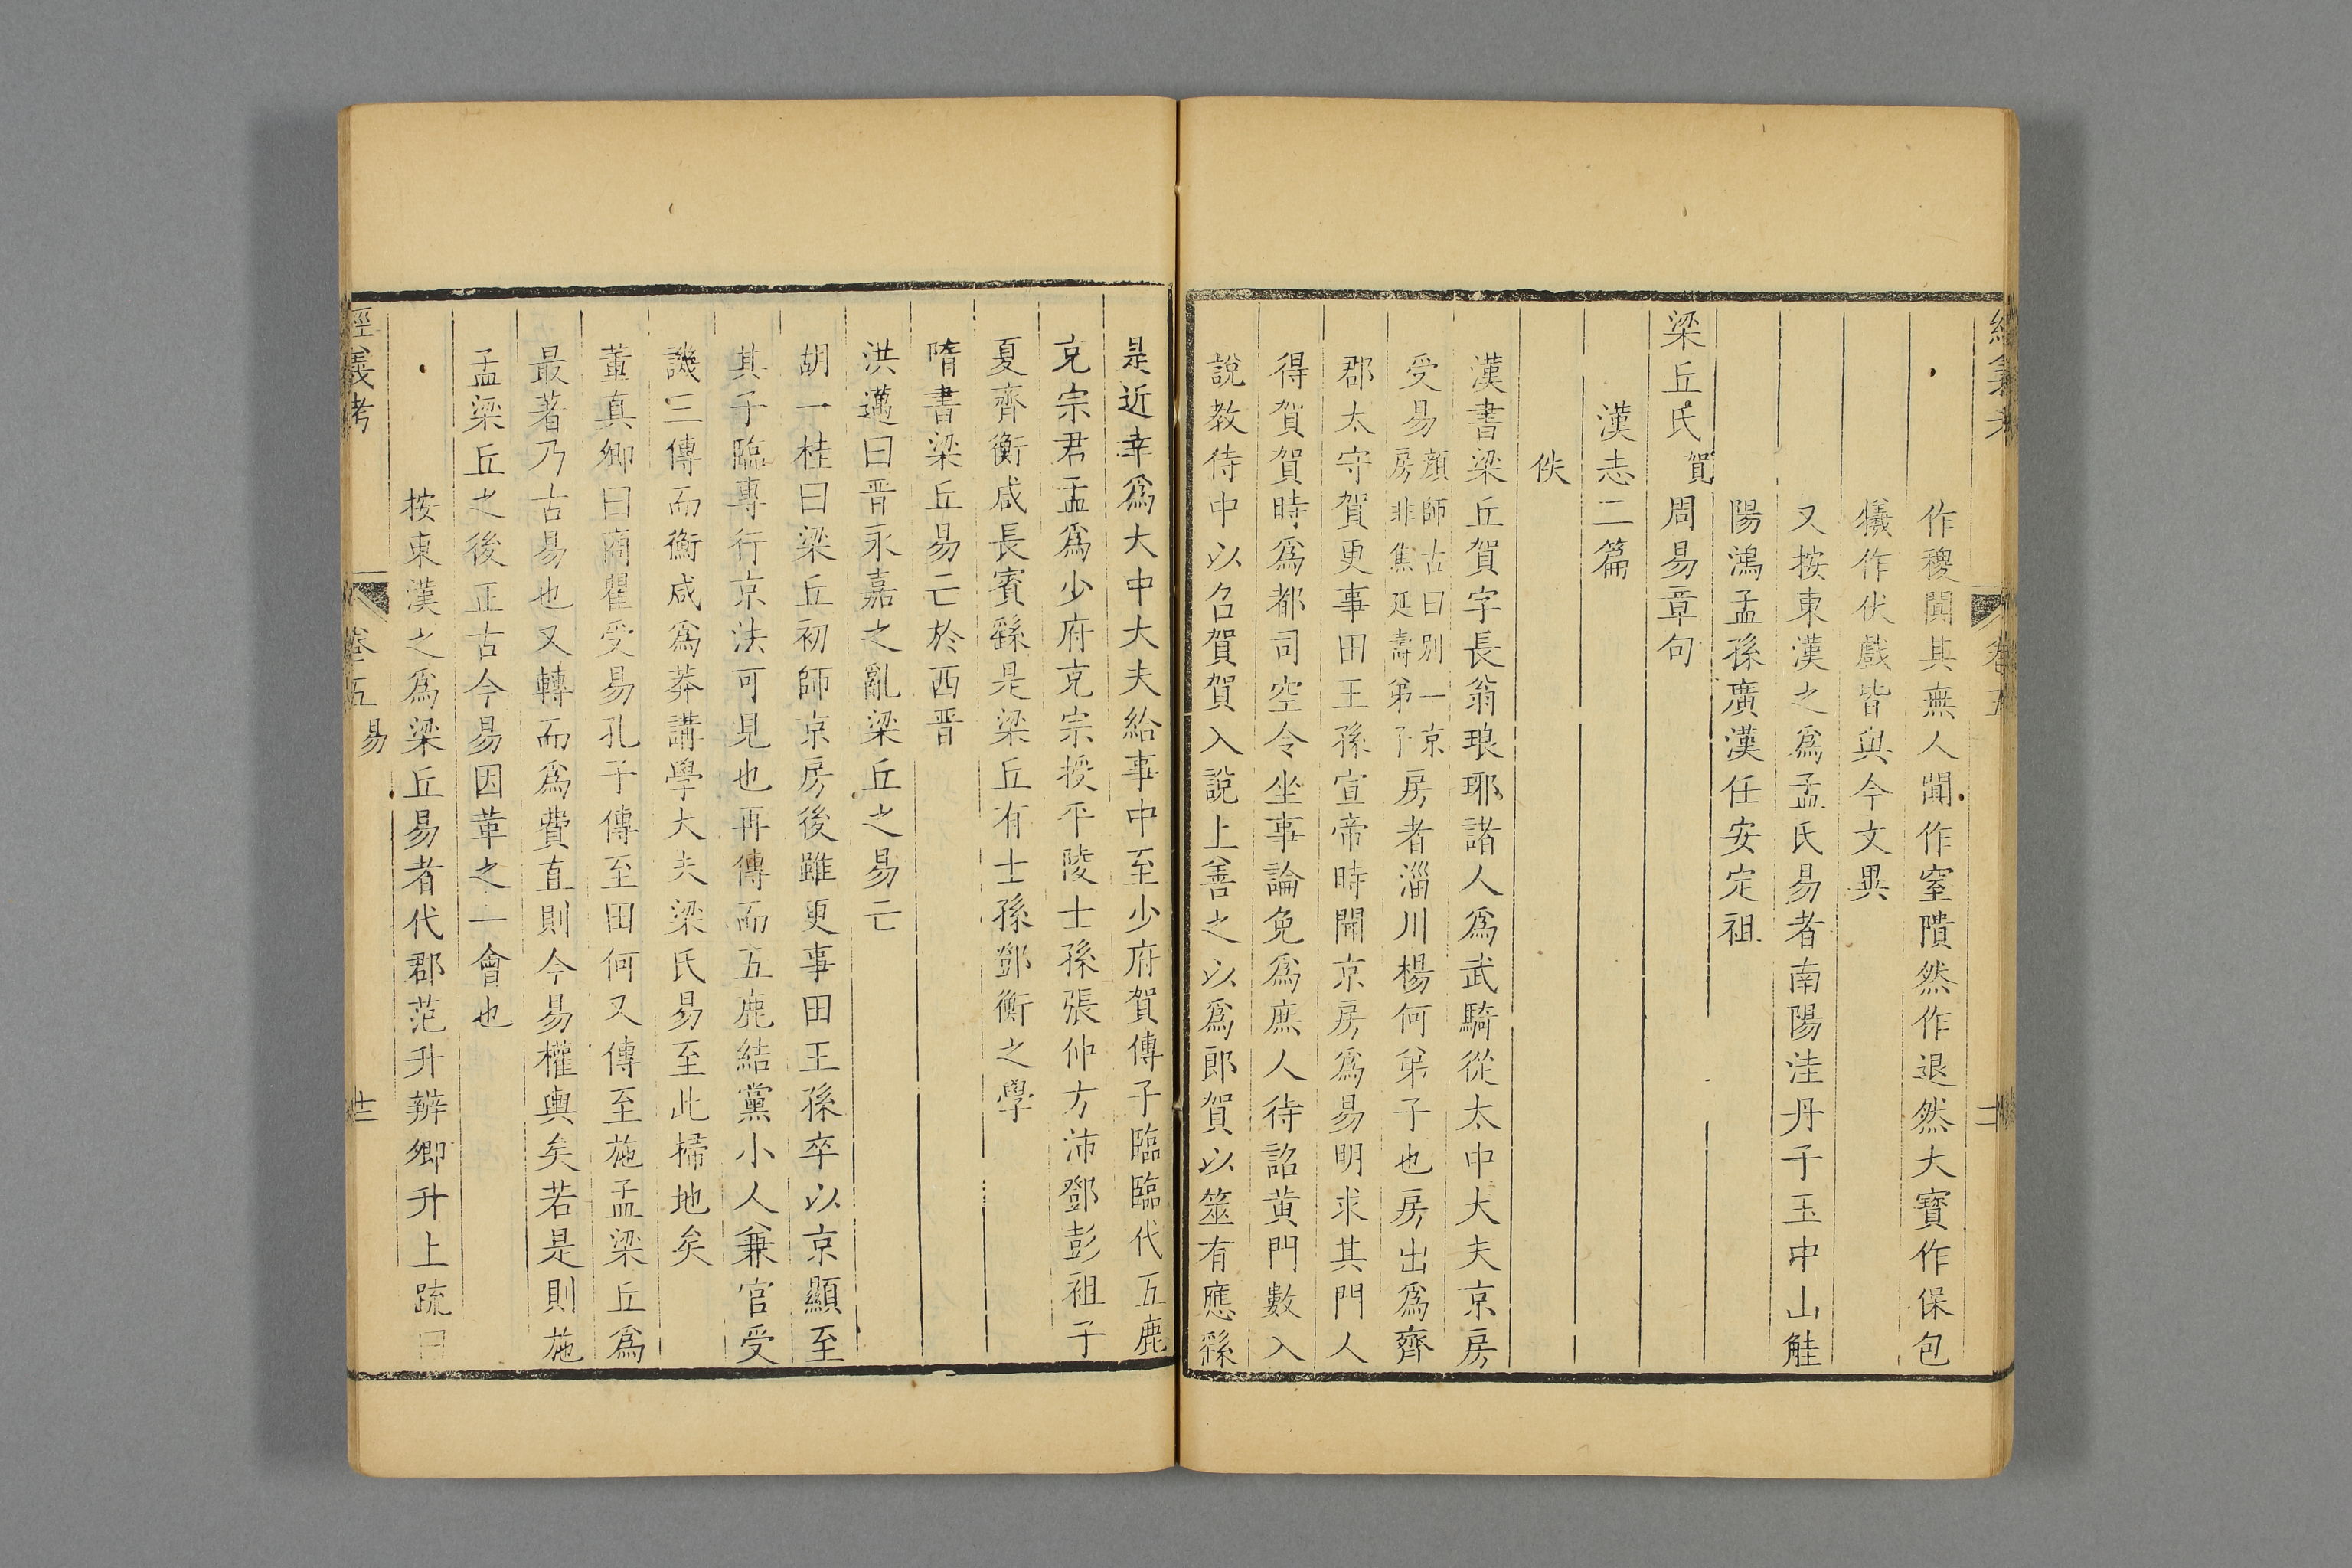 作稷闃其無人闃作窒隤然作退然大寶作保包
犧作伏戲皆與今文異
又按東漢之爲孟氏易者南陽洼丹子玉中山觟
陽鴻孟孫廣漢任安定祖
梁丘氏賀周易章句
漢志二篇
佚
漢書梁丘賀字長翁琅琊諸人爲武騎從太中大夫京房
受易顔師古曰別一京房非焦延壽弟子房者淄川楊何弟子也房出爲齊
郡太守賀更事田王孫宣帝時聞京房爲易明求其門人
得賀賀時爲都司空令坐事論免爲庶人待詔黄門數入
說教侍中以召賀賀入說上善之以爲郎賀以筮有應繇
是近幸爲大中大夫給事中至少府賀傳子臨臨代五鹿
充宗君孟爲少府充宗授平陵士孫張仲方沛鄧彭祖子
夏齊衡咸長賓繇是梁丘有士孫鄧衡之學
隋書梁丘易亡於西晋
洪邁曰晋永嘉之亂梁丘之易亡
胡一桂曰梁丘初師京房後雖更事田王孫卒以京顯至
其子臨專行京法可見也再傳而五鹿結黨小人兼官受
譏三傳而衡咸爲莽講學大夫梁氏易至此掃地矣
董真卿曰商瞿受易孔子傳至田何又傳至施孟梁丘爲
最著乃古易也又轉而爲費直則今易權輿矣若是則施
孟梁丘之後正古今易因革之一會也
按東漢之爲梁丘易者代郡范升辨卿升上疏曰
經義考 卷五 易